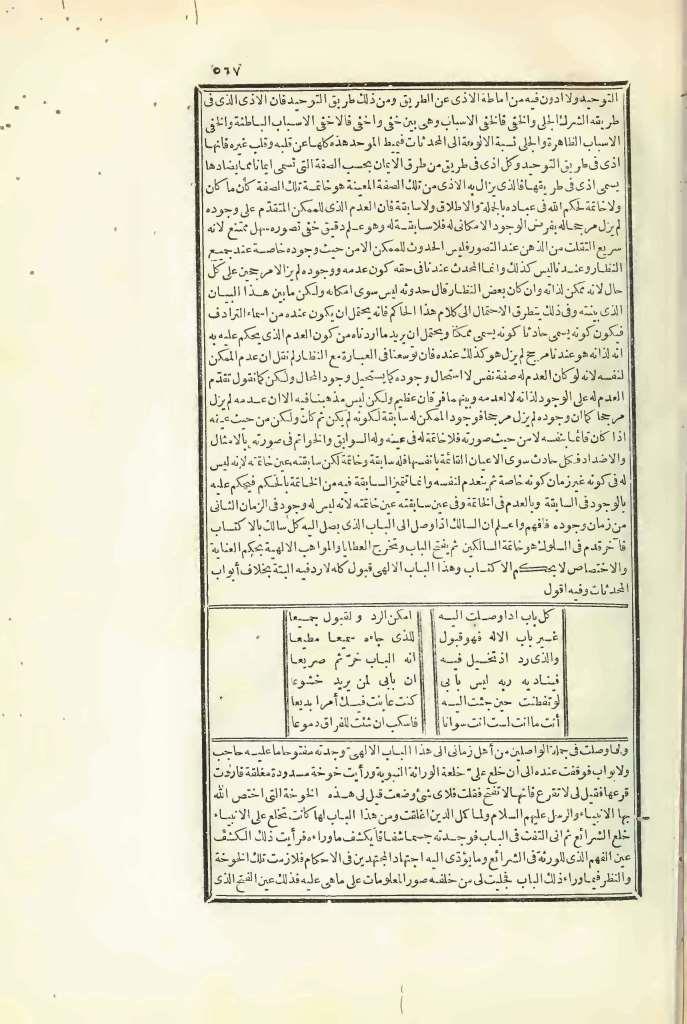 ٥٦٧
التوحيد ولا ادون فيه من اماطة الاذى عن الطريق ومن ذلك طريق التوحيد فان الاذى الذى فى
طريقه الشرك الجلى والخفى فالخفى الاسباب وهى بين خفى وأخفى فالاخفى الاسباب الباطنة والخفى
الاسباب الظاهرة والجلى نسبة الالوهية الى المحدثات فيميط الموحد هذه كلها عن قلبه وقلب غيره فانها
اذى فى طريق التوحيد وكل اذى فى طريق من طرق الايمان بحسب الصفة التى تسمى ايمانا فما يضادها
يسمى اذى فى طريقها فالذى يزال به الاذى من تلك الصفة المعينة هو خاتمة تلك الصفة كان ما كان
ولا خاتمة لحكم الله فى عباده بالجملة والاطلاق ولا سابقة فان العدم الذى للممكن المتقدم على وجوده
لم يزل مرجحا له بفرض الوجود الامكانى له فلا سابقة له وهو علم دقيق خفى تصوره سهل ممتنع لانه
سريع التفلت من الذهن عند التصور فليس الحدوث للممكن الا من حيث وجوده خاصة عند جميع
النظار وعندنا ليس كذلك وانما المحدث عندنا فى حقه كون عدمه ووجوده لم يزالا مرجحين على كل
حال لانه ممكن لذاته وان كان بعض النظار قال حدوثه ليس سوى امكانه ولكن ما بين هذا البيان
الذى بينته وفى ذلك يتطرق الاحتمال الى كلام هذا الحاكم فانه يحتمل ان يكون عنده من اسماء الترادف
فيكون كونه يسمى حادثا كونه يسمى ممكنا ويحتمل ان يريد ما اردناه من كون العدم الذى يحكم عليه به
انه لذاته هو عندنا مرجح لم يزل هو كذلك عنده فان توسعنا فى العبارة مع النظار لم نقل ان عدم الممكن
لنفسه لانه لو كان العدم له صفة نفس لاستحال وجوده كما يستحيل وجود المحال ولكن كما نقول تقدم
العدم له على الوجود لذاته لا لعدمه وبينهما فرقان عظيم ولكن ليس مذهبنا فيه الا ان عدمه لم يزل
مرجحا كما ان وجوده لم يزل مرجحا فوجود الممكن له سابقة لكونه لم يكن ثم كان ولكن من حيث عينه
اذا كان قائما بنفسه لا من حيث صورته فلا خاتمة له فى عينه وله السوابق والخواتم فى صورته بالامثال
والاضداد فكل حادث سوى الاعيان القائمة بانفسها فله سابقة وخاتمة لكن سابقته عين خاتمته لانه ليس
له فى كونه غير زمان كونه خاصة ثم ينعدم لنفسه وانما تتميز السابقة فيه من الخاتمة بالحكم فيحكم عليه
بالوجود فى السابقة وبالعدم فى الخاتمة وفى عين سابقته عين خاتمته لانه ليس له وجود فى الزمان الثانى
من زمان وجوده فافهم واعلم ان السالك اذا وصل الى الباب الذى يصل اليه كل سالك بالاكتساب
فآخر قدم فى السلوك هو خاتمة السالكين ثم يفتح الباب وتخرج العطايا والمواهب الالهية بحكم العناية
والاختصاص لا بحكم الاكتساب وهذا الباب الالهى قبول كله لا رد فيه البتة بخلاف أبواب
المحدثات وفيه اقول
كل باب اذا وصلت اليه امكن الرد والقبول جميعا
غير باب الاله فهو قبول للذى جاءه سميعا مطيعا
والذى رد اذ تخيل فيه انه الباب خر ثم صريعا
فيناديه ربه ليس بابى ان بابى لمن يريد خشوعا
لو تفطنت حين جئت اليه كنت عاينت فيك أمرا بديعا
أنت ما أنت لست انت سوانا فاسكب ان شئت للفراق دموعا
ولما وصلت فى جملة الواصلين من أهل زمانى الى هذا الباب الالهى وجدته مفتوحا ما عليه حاجب
ولا بواب فوقفت عنده الى ان خلع علىّ خلعة الوراثة النبوية ورأيت خوخة مسدودة مغلقة فاردت
قرعها فقيل لى لا تقرع فانها لا تفتح فقلت فلاى شئ وضعت قيل لى هذه الخوخة التى اختص الله
بها الانبياء والرسل عليهم السلام ولما كمل الدين اغلقت ومن هذا الباب لها كانت تخلع على الانبياء
خلع الشرائع ثم انى التفت فى الباب فوجدته جسما شفافا يكشف ما وراءه فرأيت ذلك الكشف
عين الفهم الذى للورثة فى الشرائع وما يؤدّى اليه اجتهاد المجتهدين فى الاحكام فلازمت تلك الخوخة
والنظر فيما وراء ذلك الباب فجليت لى من خلفه صور المعلومات على ما هى عليه فذلك عين الفتح الذى